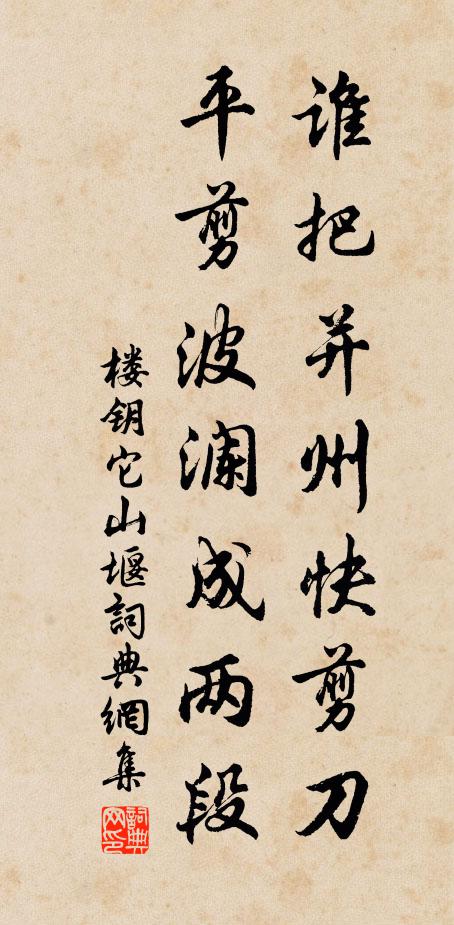 誰把并州快剪刀
平剪波澜成两段
楼钥它山堰詞典網集
詞典网印